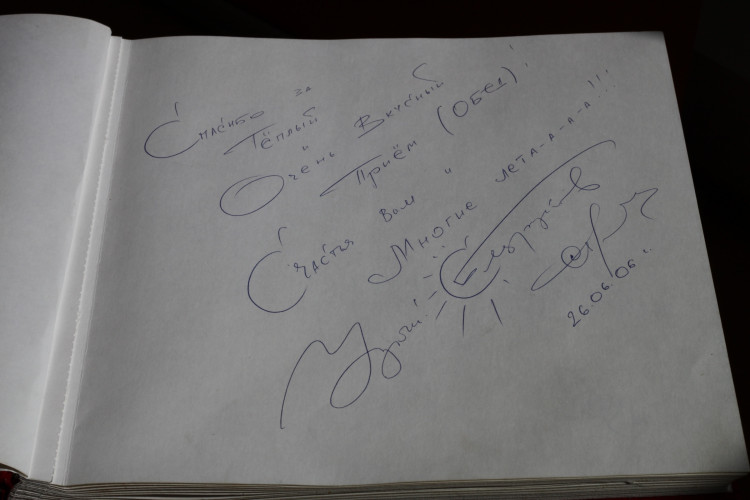 Спасибо за
Тёплый и
Очень Вкусный
Приём (ОБЕД)!
Счастья вам и
Многие лета-а-а-а!!!
26.06.06 г.